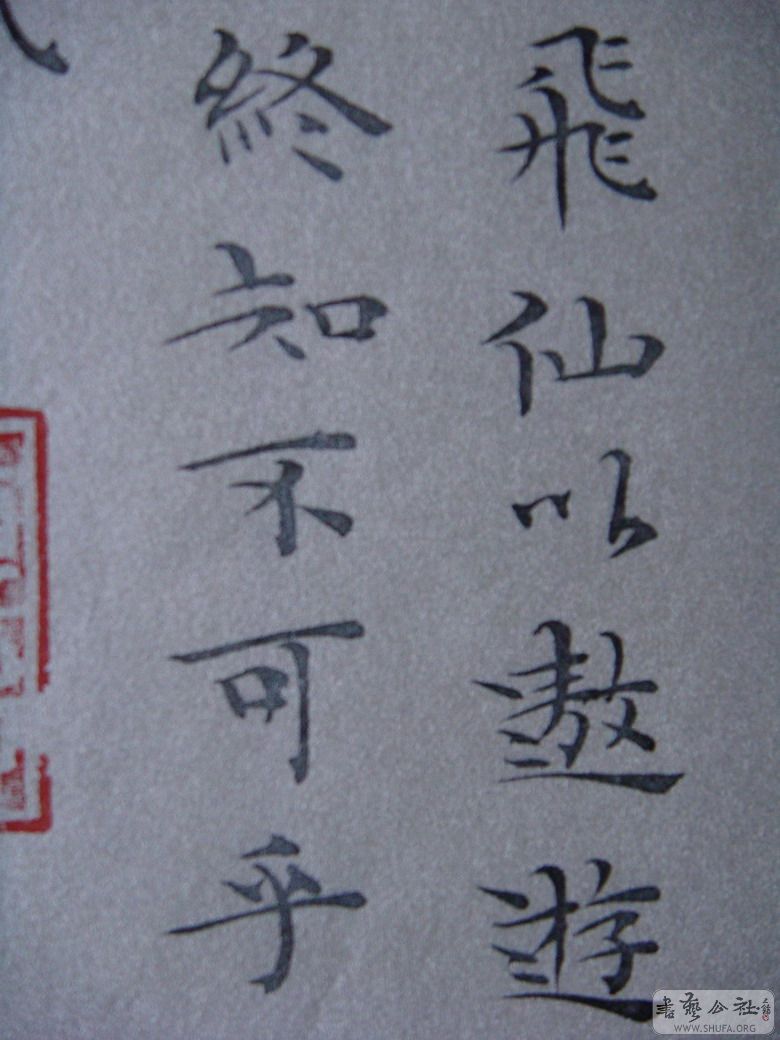 飛仙以遨遊
終知不可乎
書藝公社
WWW.SHUFA.ORG